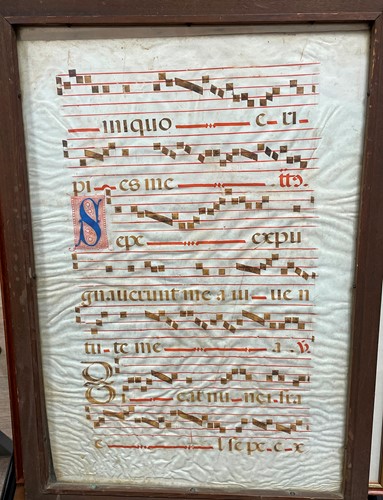 iniquo e-ri-
pi-es me
Sepe expu
gnauerunt me a iu-uen
tu-te me a. V.
Di cat nu-nc is-ra
e l sepe-e-x